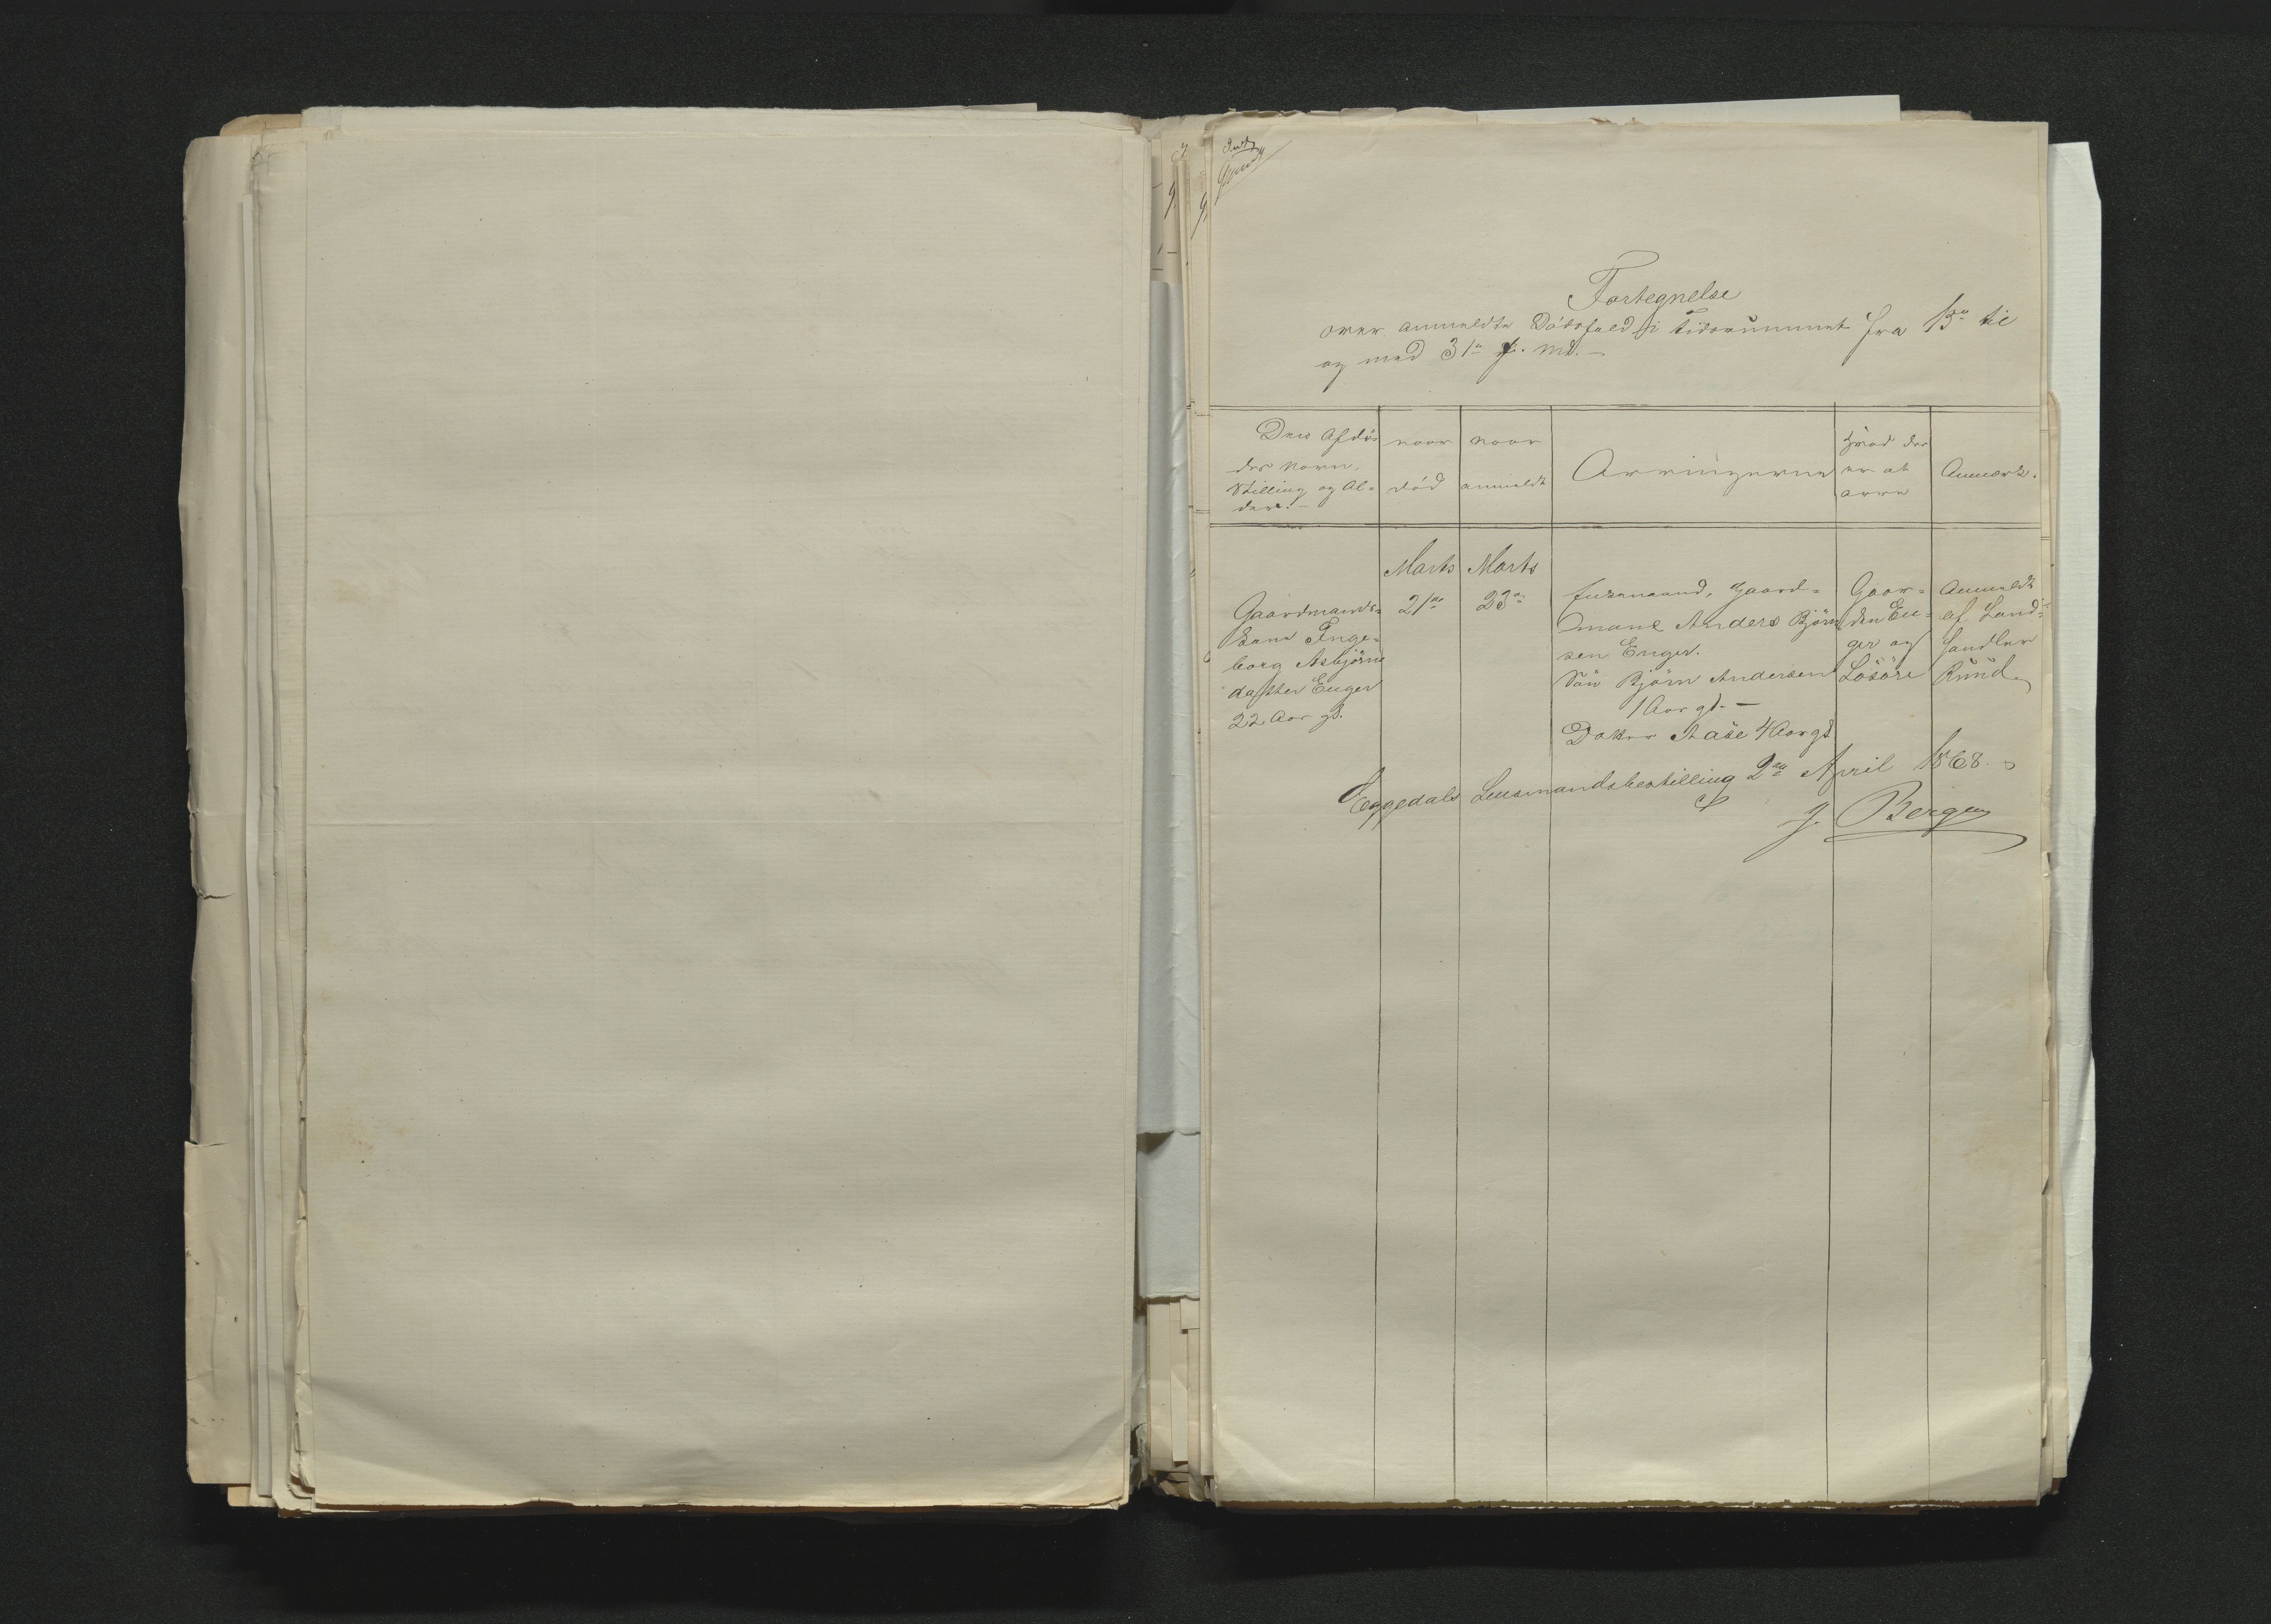 Indf
Fortegnelse
over anmeldte Dödsfald i Tidsrummet fra 15de til
og med 31te f. Md. —
Den Afdö-
des Navn,
Stilling og Al-
der. —
naar
död
naar
anmeldt
Arvingerne
Hvad der
er at
arve
Anmærk.
Gaardmands-
kone Inge-
borg Asbjörns-
datter Enger
22 Aar gl.
Marts
21de
Marts
23de
Enkemand, Gaard-
mand Anders Björn
sen Enger.
Sön Björn Andersen
1 Aar gl. —
Datter Aase 4 Aar gl
Gaar-
den En-
ger og
Lösöre
Anmeldt
af Land-
handler
Ruud
Eggedals Lensmandsbestilling 2den April 1868.
J. Bergen